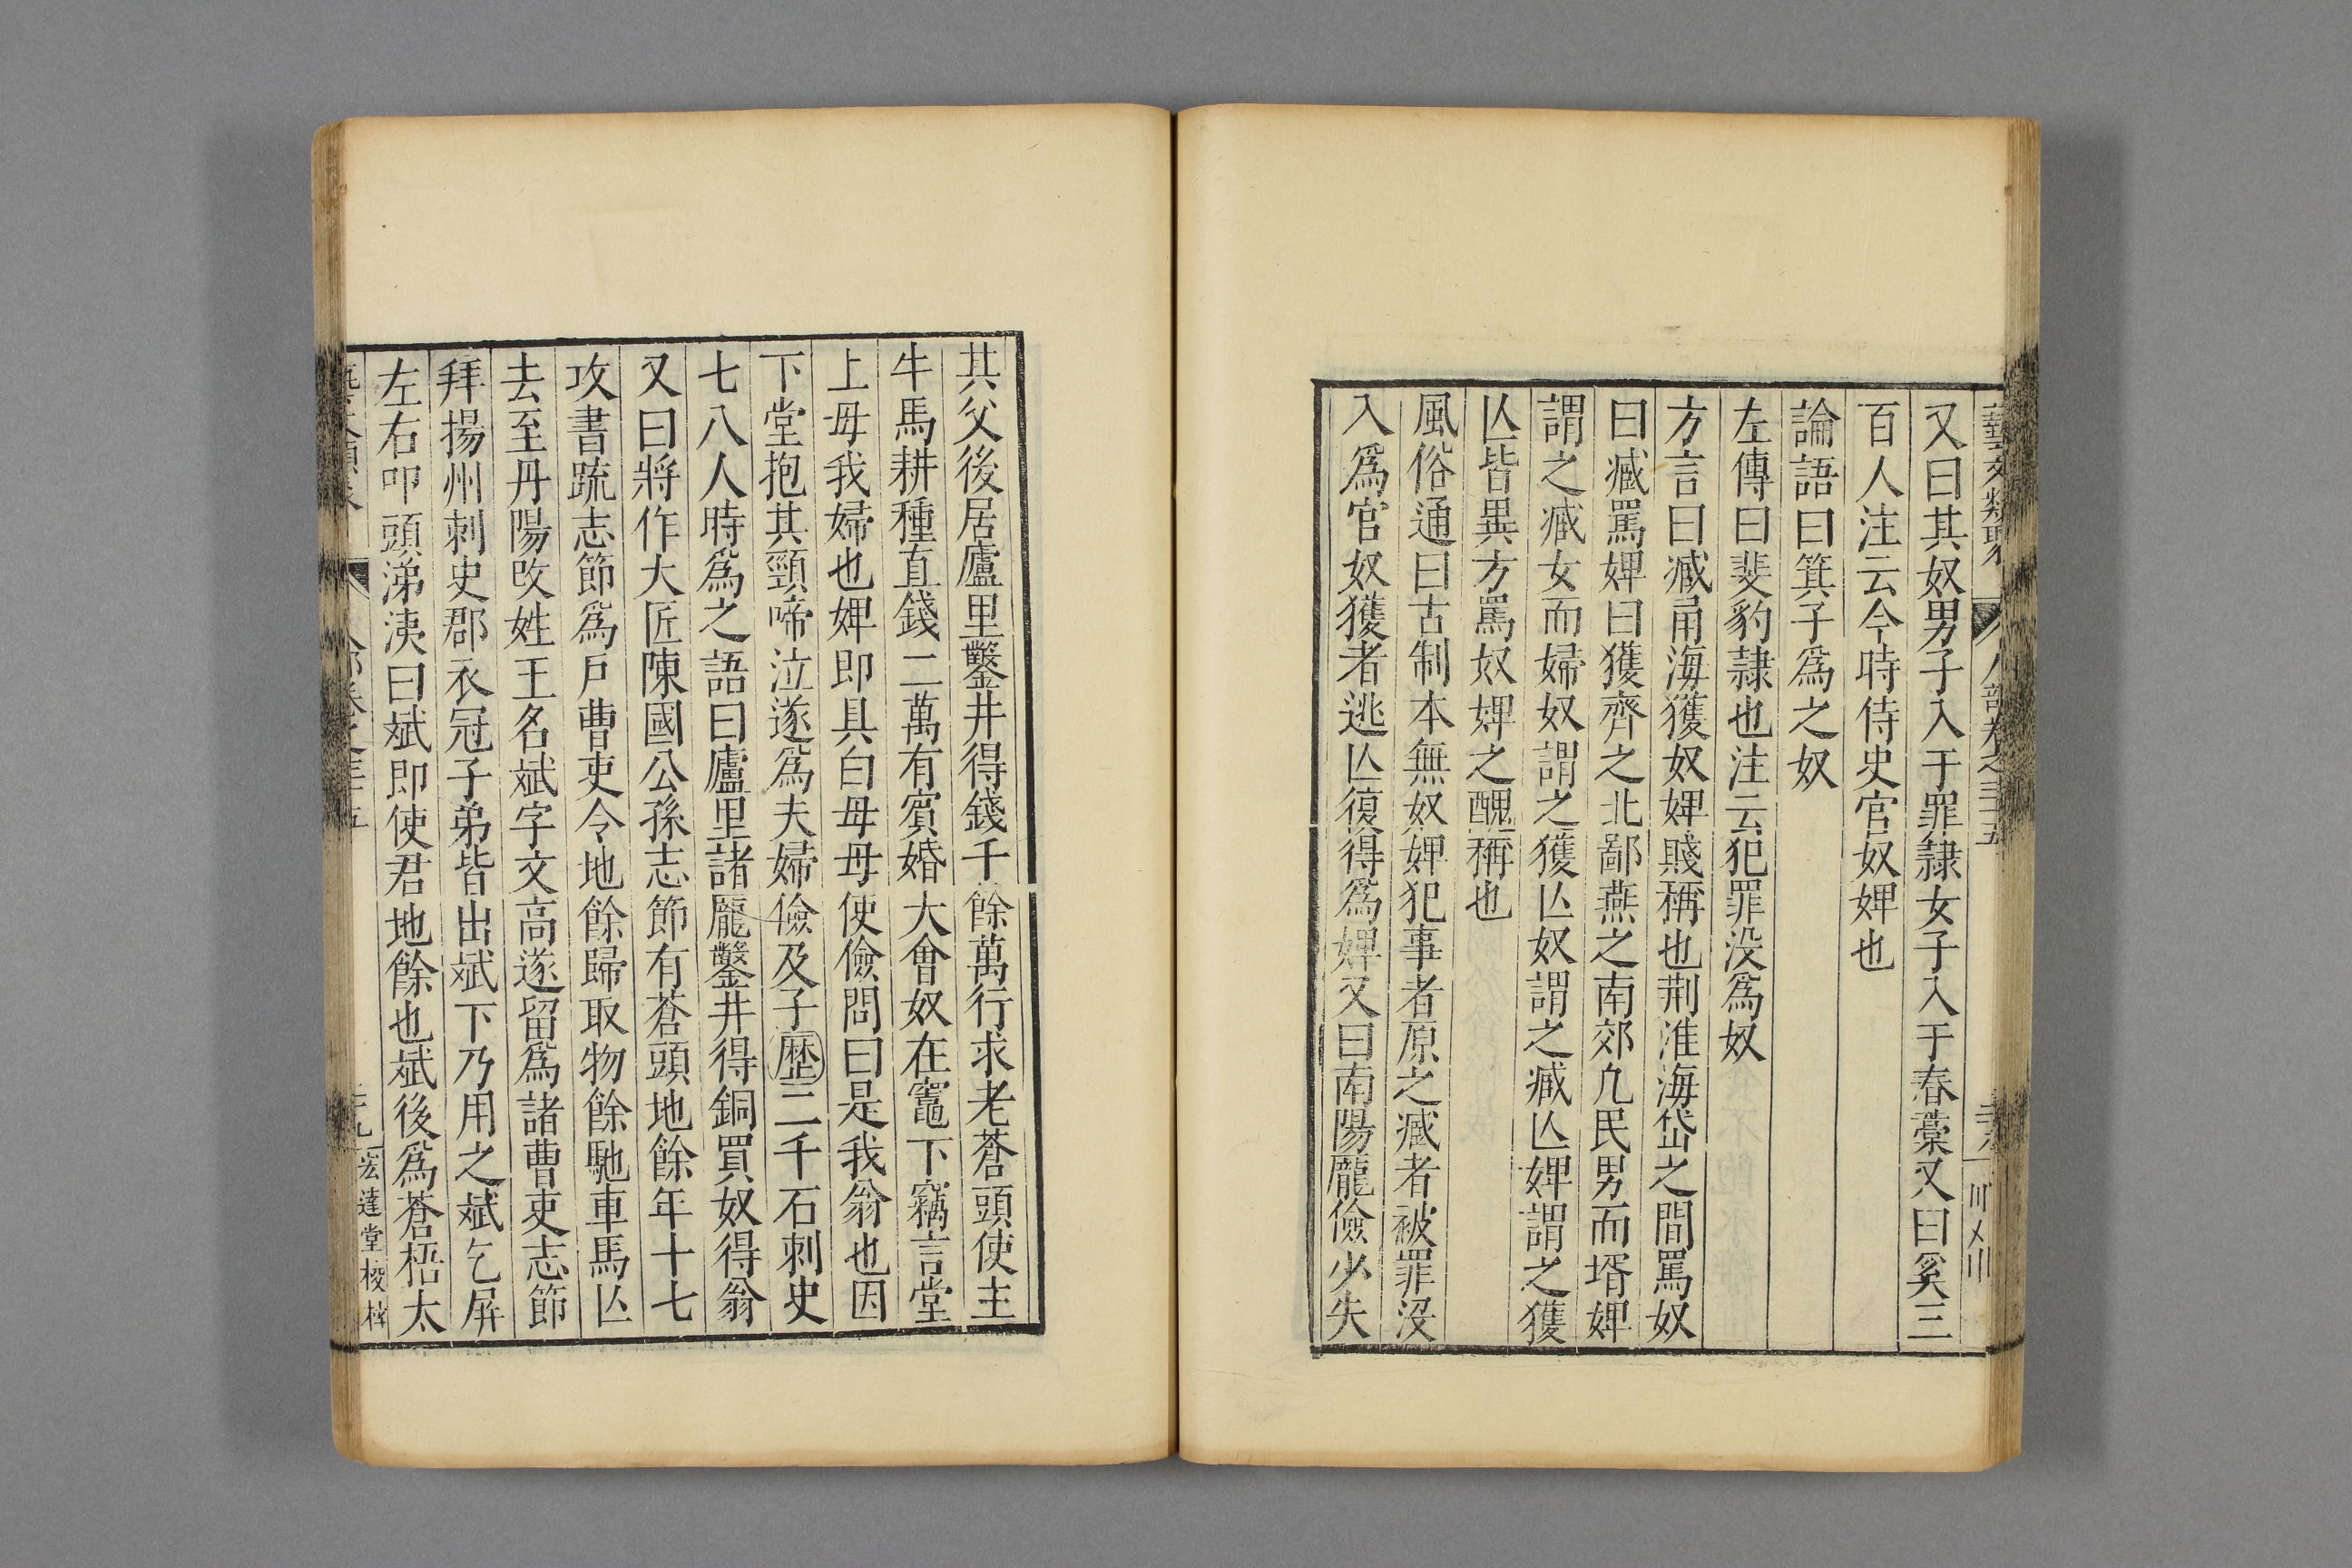 藝文類聚 人部卷之三十五
又曰其奴男子入于罪隸女子入于舂藁又曰奚三
百人注云今時侍史官奴婢也
論語曰箕子爲之奴
左傳曰斐豹隷也注云犯罪没爲奴
方言曰臧甬海獲奴婢賤稱也荆淮海岱之間罵奴
曰臧罵婢曰獲齊之北鄙燕之南郊凢民男而壻婢
謂之臧女而婦奴謂之獲亾奴謂之臧亾婢謂之獲
亾皆異方罵奴婢之醜稱也
風俗通曰古制本無奴婢犯事者原之臧者被罪沒
入爲官奴獲者逃亾復得爲婢又曰南陽龐儉少失
其父後居廬里鑿井得錢千餘萬行求老蒼頭使主
牛馬耕種直錢二萬有賓婚大會奴在竈下竊言堂
上母我婦也婢即具白母母使儉問曰是我翁也因
下堂抱其頸啼泣遂爲夫婦儉及子歷二千石刺史
七八人時爲之語曰廬里諸龐鑿井得銅買奴得翁
又曰將作大匠陳國公孫志節有蒼頭地餘年十七
攻書䟽志節爲戸曹吏令地餘歸取物餘馳車馬亾
去至丹陽改姓王名斌字文高遂留爲諸曹吏志節
拜揚州刺史郡衣冠子弟皆出斌下乃用之斌乞屏
左右叩頭涕洟曰斌即使君地餘也斌後爲蒼梧太
卷之三十五 宏達堂校栞